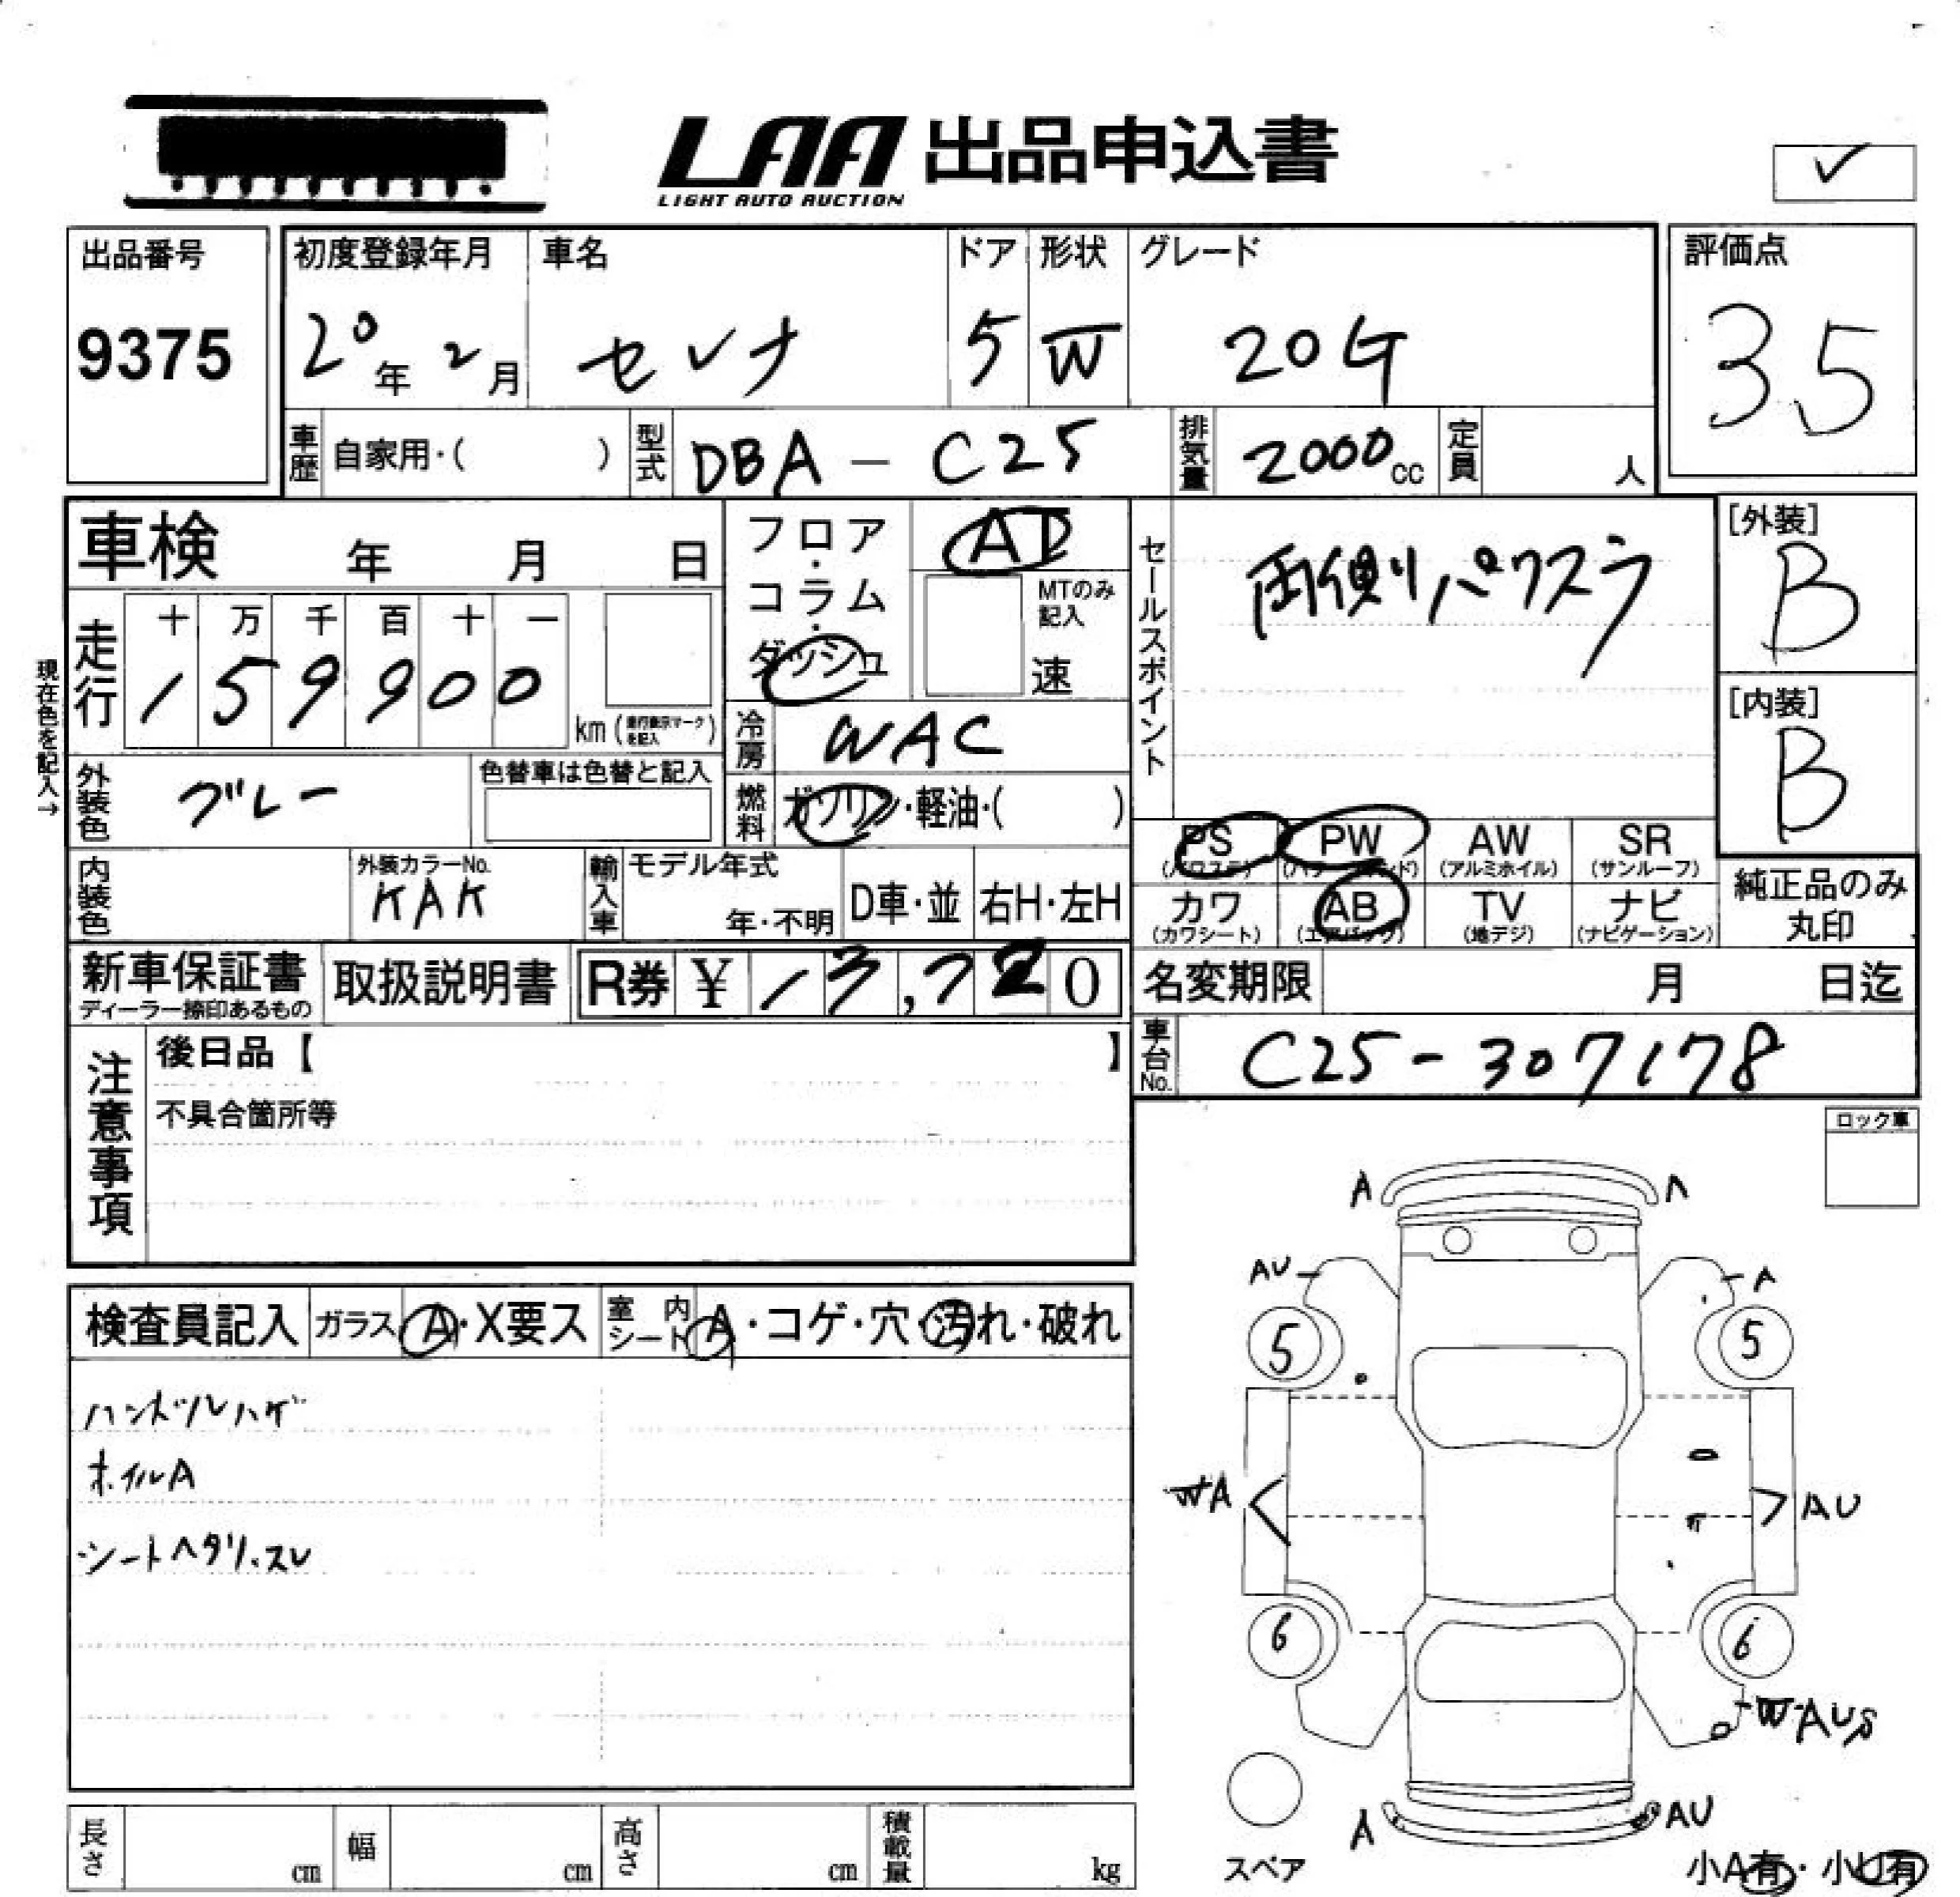 LAA 出品申込書
LIGHT AUTO AUCTION
✓
出品番号 初度登録年月 車名 ドア 形状 グレード 評価点
9375 20年 2月 セレナ 5 W 20G 3.5
車歴 自家用・( ) 型式 DBA - C25 排気量 2000cc 定員 人
車検 年 月 日
フロア・コラム・ダッシュ
AT
MTのみ記入
速
セールスポイント 両側パワスラ
[外装]
B
[内装]
B
現在色を記入→
走行 十 万 千 百 十 一
1 5 9 9 0 0 km
冷房 WAC
外装色 グレー
色替車は色替と記入
燃料 ガソリン・軽油・( )
PS PW AW SR
(パワステ) (アルミホイル) (サンルーフ)
カワ AB TV ナビ
(カワシート) (エアバック) (地デジ) (ナビゲーション)
純正品のみ
丸印
内装色
外装カラーNo.
KAK
輸入車 モデル年式
年・不明
D車・並 右H・左H
新車保証書
取扱説明書 R券 ¥ 13,720
名変期限 月 日迄
車台No. C25-307178
注意事項 後日品【 】
不具合箇所等
ロック車
検査員記入 ガラス A・X要ス 室内シート A・コゲ・穴・汚れ・破れ
ハンドルハゲ
ホイルA
シートヘタリ、スレ
A A
AU A
5 5
WA AU
6 6
WAUS
A AU
スペア
小A有・小U有
長さ cm 幅 cm 高さ cm 積載量 kg